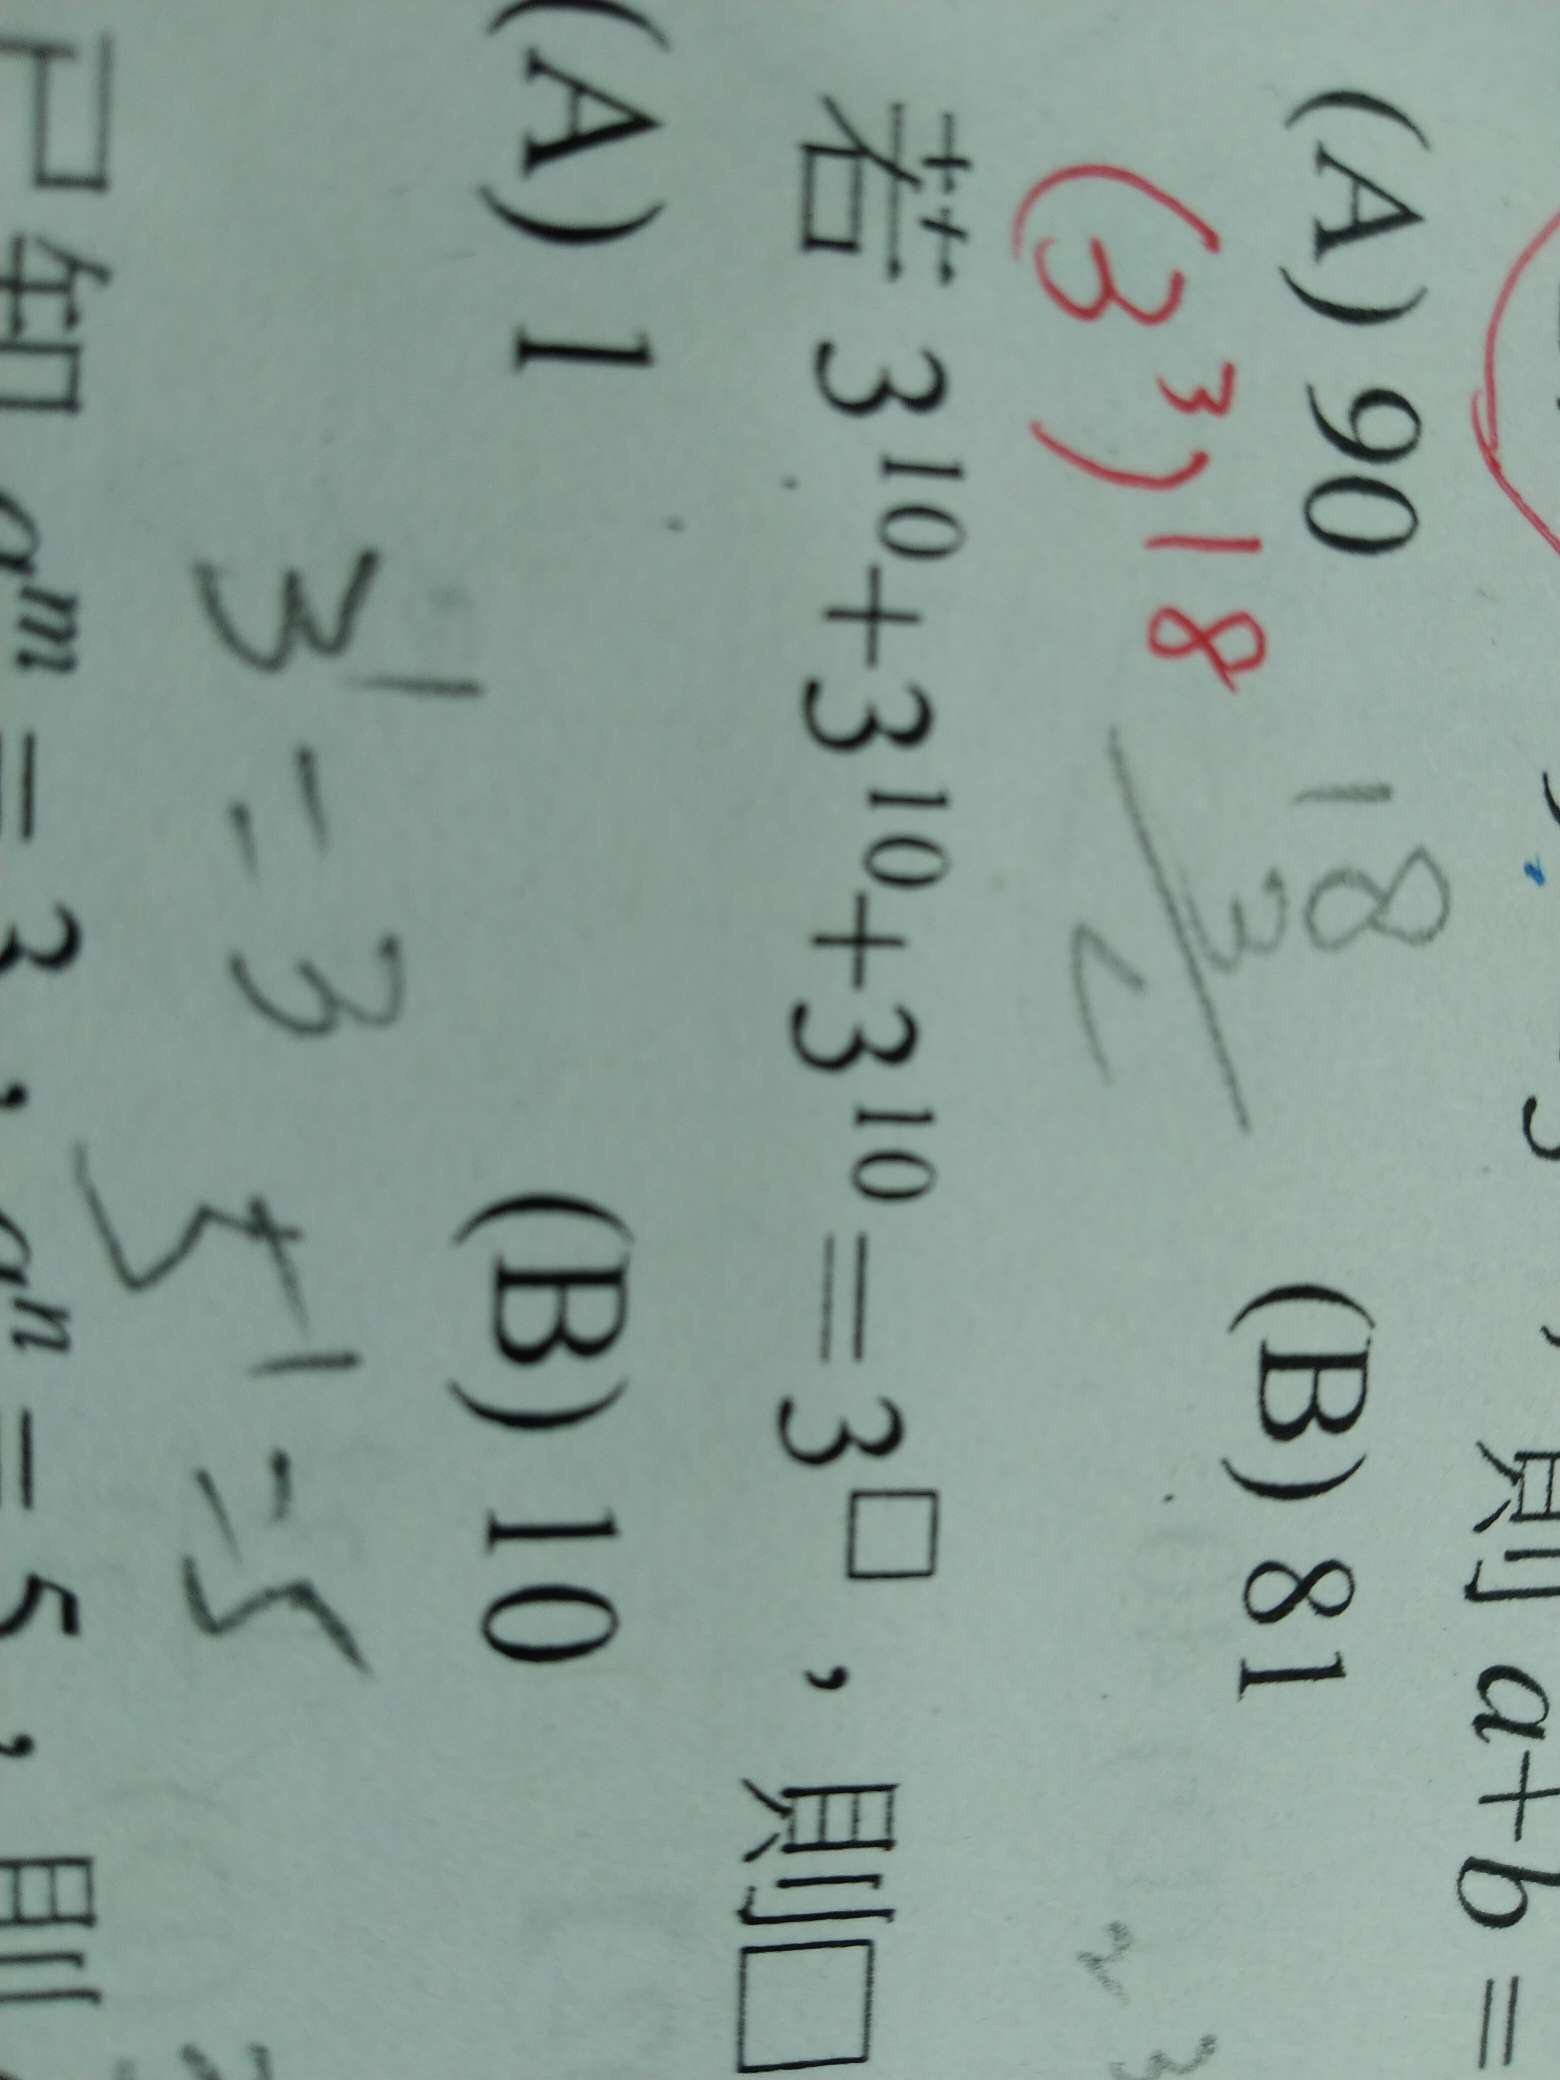 則 a+b =
(A) 90 (B) 81
18
3
(3³)18
若 3¹⁰+3¹⁰+3¹⁰=3□，則□
(A) 1 (B) 10
3¹=3 5¹=5
已知 aᵐ=3，aⁿ=5，則